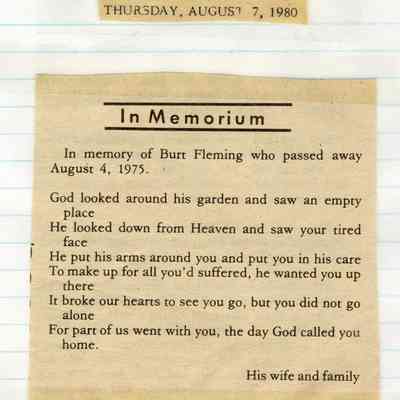 THURSDAY, AUGUST 7, 1980
In Memorium
In memory of Burt Fleming who passed away
August 4, 1975.
God looked around his garden and saw an empty
place
He looked down from Heaven and saw your tired
face
He put his arms around you and put you in his care
To make up for all you'd suffered, he wanted you up
there
It broke our hearts to see you go, but you did not go
alone
For part of us went with you, the day God called you
home.
His wife and family